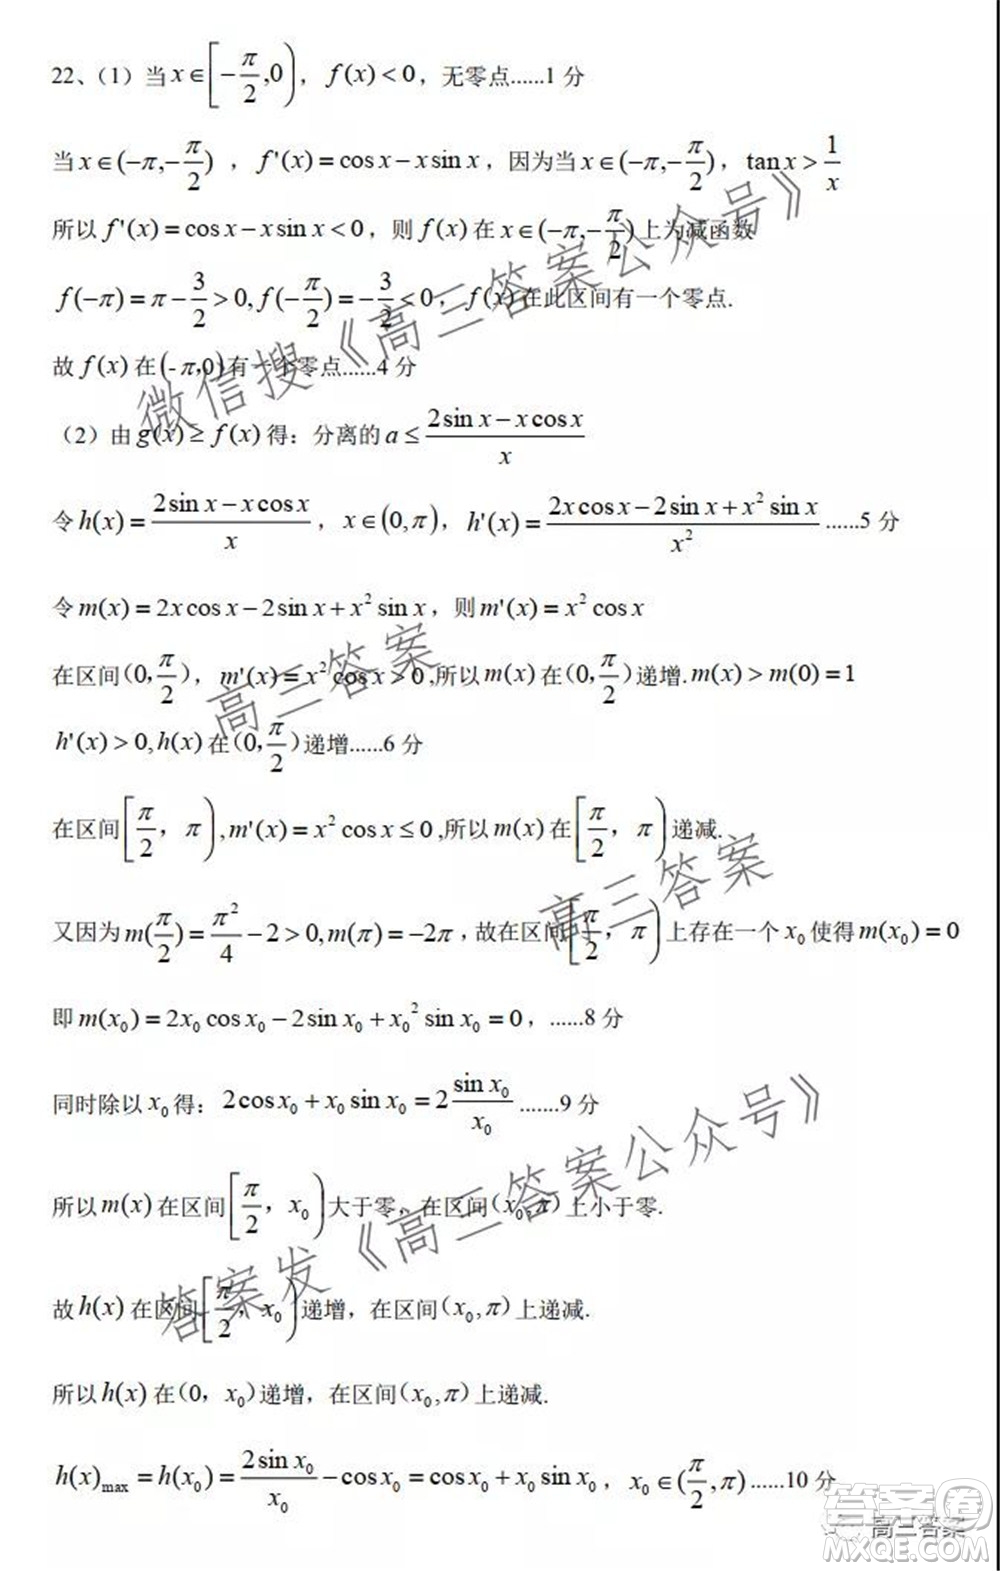 22、（1）当 x∈[-π/2,0)，f(x)<0，无零点......1 分
当 x∈(-π,-π/2) ，f'(x)=cosx-xsinx，因为当 x∈(-π,-π/2)，tanx>1/x
所以 f'(x)=cosx-xsinx<0，则 f(x) 在 x∈(-π,-π/2)上为减函数
f(-π)=π-3/2>0,f(-π/2)=-3/2<0，f(x) 在此区间有一个零点.
故 f(x) 在 (-π,0) 有一个零点......4 分
（2）由 g(x)≥f(x) 得：分离的 a≤(2sinx-xcosx)/x
令 h(x)=(2sinx-xcosx)/x，x∈(0,π)，h'(x)=(2xcosx-2sinx+x²sinx)/x² ......5 分
令 m(x)=2xcosx-2sinx+x²sinx，则 m'(x)=x²cosx
在区间（0,π/2），m'(x)=x²cosx>0 ,所以 m(x) 在（0,π/2）递增. m(x)>m(0)=1
h'(x)>0,h(x) 在（0,π/2）递增......6 分
在区间[π/2，π),m'(x)=x²cosx≤0 ,所以 m(x) 在[π/2，π)递减.
又因为 m(π/2)=π²/4-2>0,m(π)=-2π，故在区间[π/2，π)上存在一个 x₀ 使得 m(x₀)=0
即 m(x₀)=2x₀cosx₀-2sinx₀+x₀²sinx₀=0，......8 分
同时除以 x₀ 得：2cosx₀+x₀sinx₀=2sinx₀/x₀ .......9 分
所以 m(x) 在区间[π/2，x₀)大于零，在区间（x₀,π）上小于零.
故 h(x) 在区间[π/2，x₀)递增，在区间（x₀,π）上递减.
所以 h(x) 在（0，x₀）递增，在区间（x₀,π）上递减.
h(x)max=h(x₀)=2sinx₀/x₀-cosx₀=cosx₀+x₀sinx₀，x₀∈(π/2,π)......10 分
微信搜《高三答案公众号》
高三答案
高三答案
答案发《高三答案公众号》
高三答案
答案卷
MXQE.COM